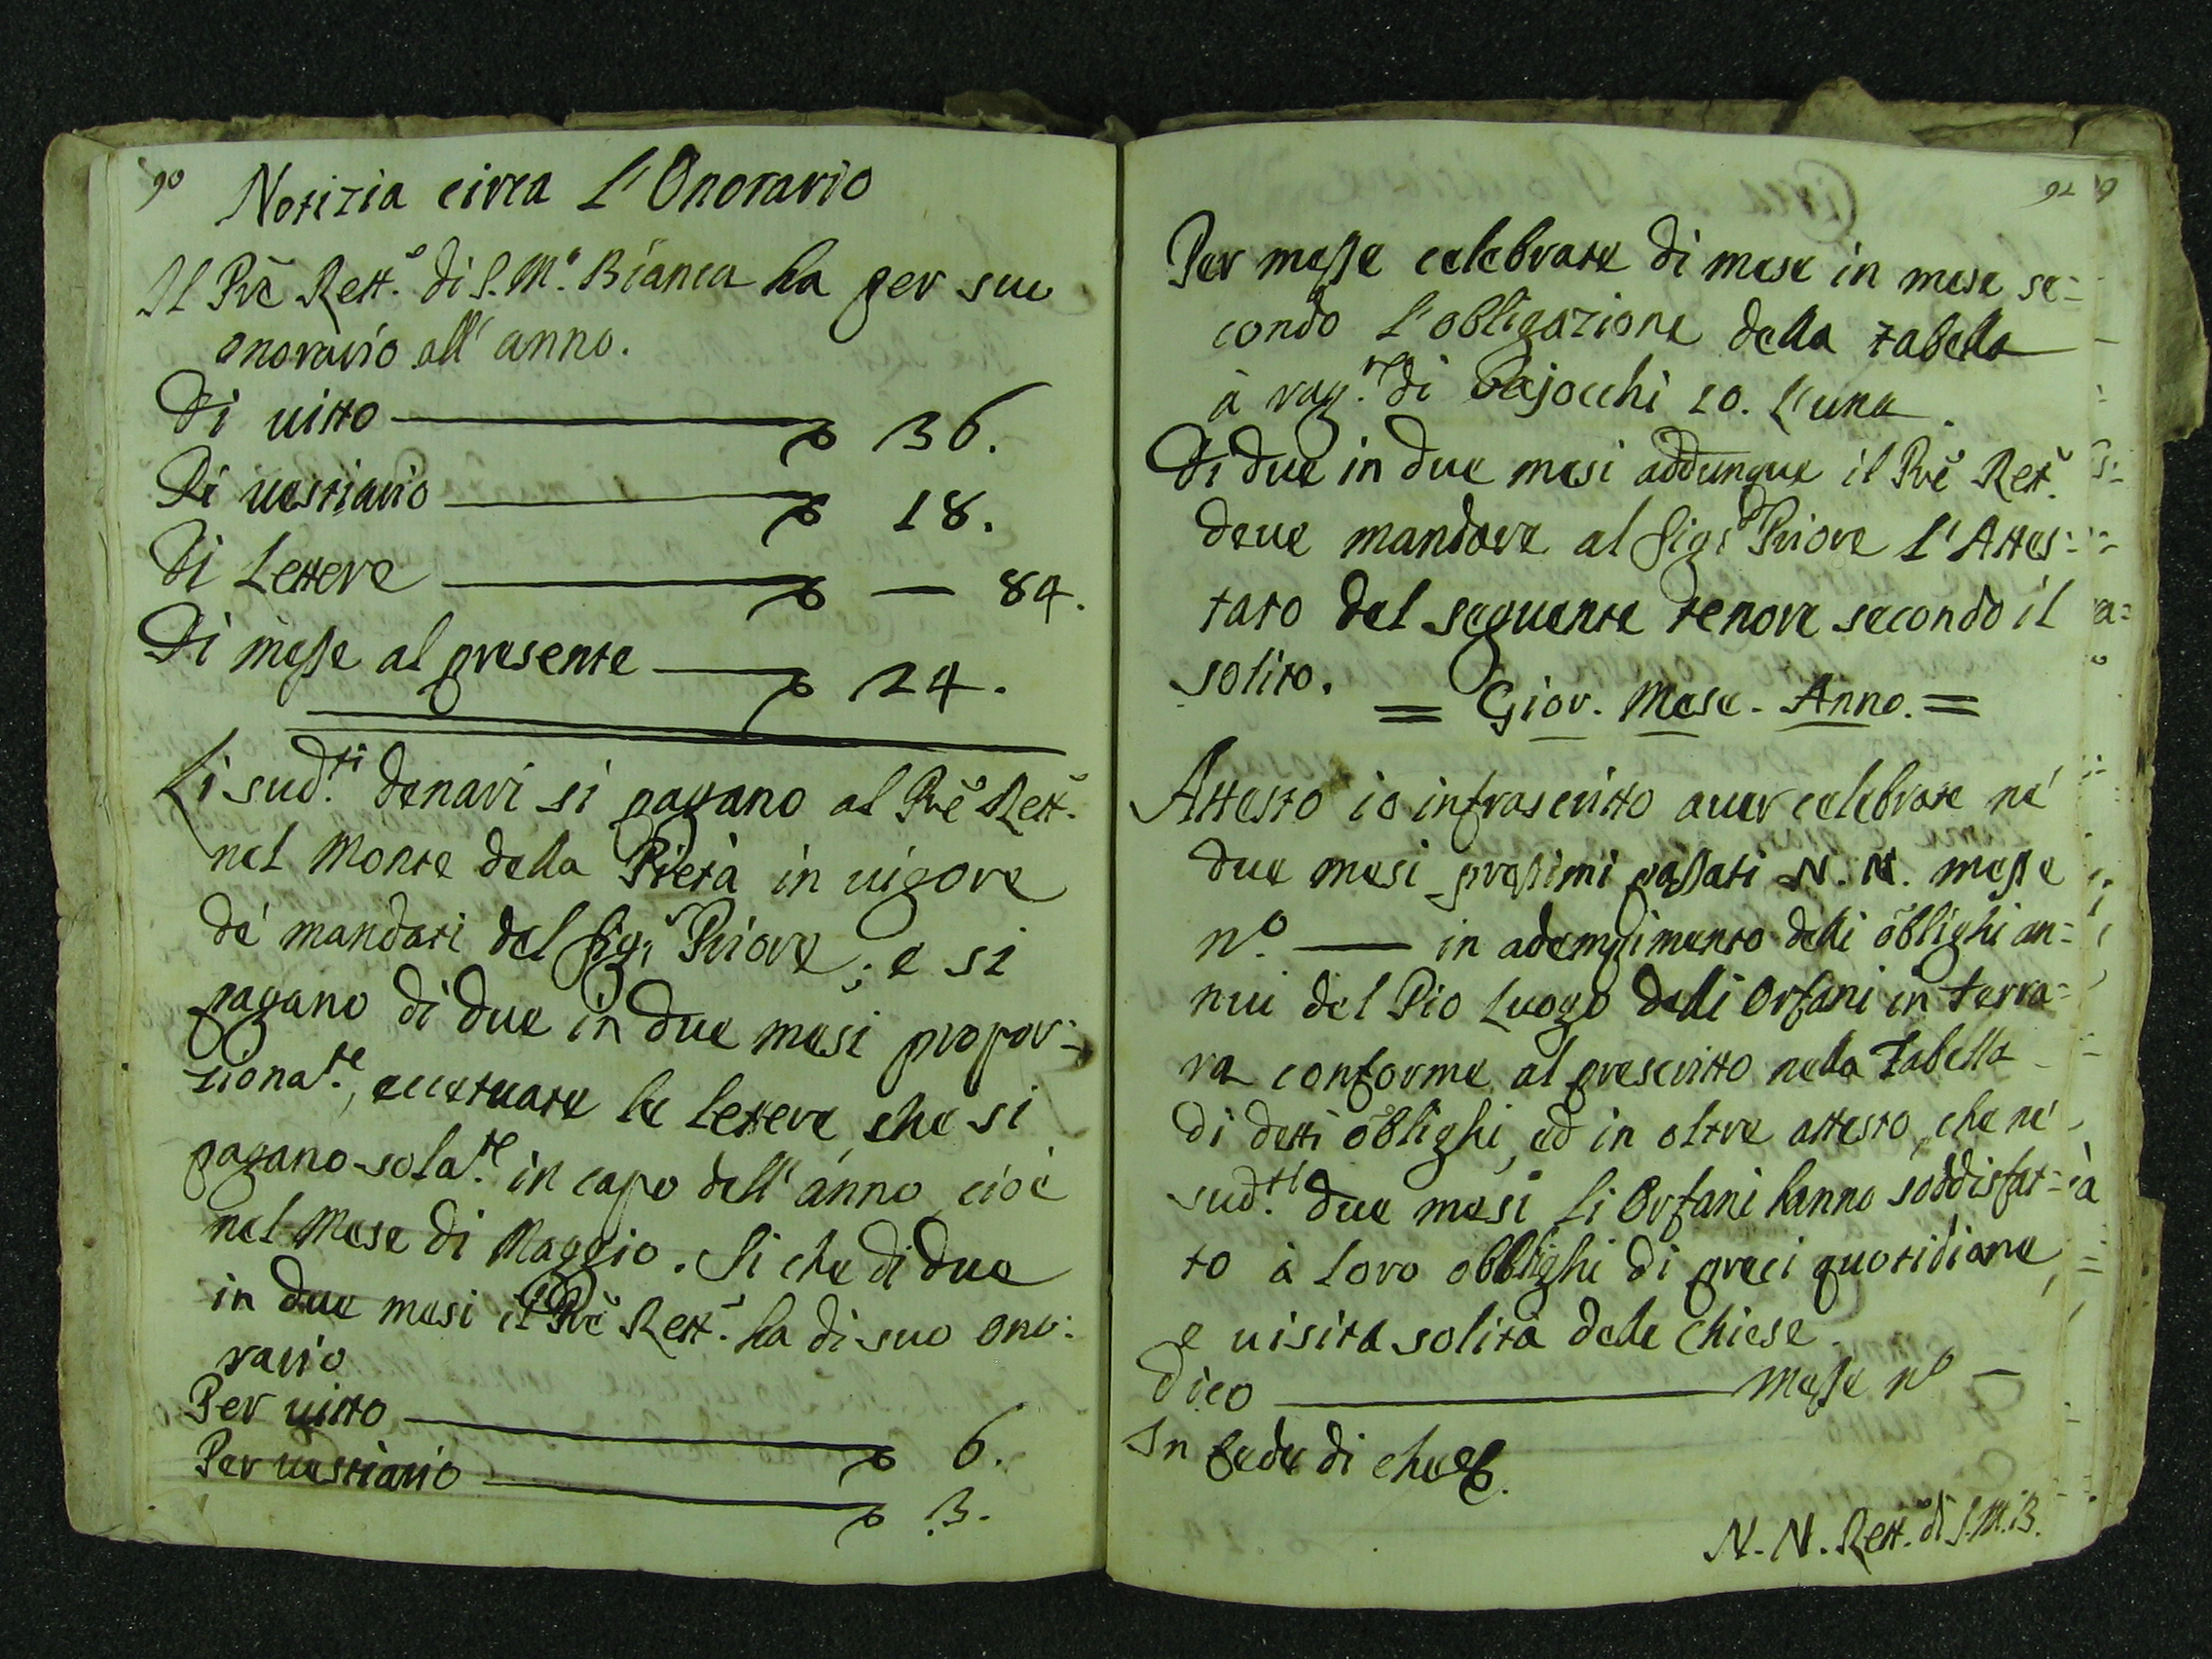 90
Notizia circa L'Onorario
Il Prē Rett.e di S. M.a Bianca ha per suo
onorario all' anno.
Di uitto — 36.
Di uestiario — 18.
Di Lettere — — 84.
Di messe al presente — 24.
Li sud.ti denari si pagano al Prē Rett.
nel Monte della Pietà in uigore
de' mandati del Sig.r Priore; e si
pagano di due in due mesi propor=
tiona.te, eccetuate le lettere, che si
pagano sola.te in capo dell' anno, cioè
nel Mese di Maggio. Si che di due
in due mesi il Prē Rett. ha di suo ono:
rario
Per uitto — 6.
Per uestiario — 3.
91
Per messe celebrate di mese in mese se=
condo l'obligazione della tabella
à rag.ne di Bajocchi 20. l'una
Di due in due mesi addunque il Prē Rett.
deue mandare al Sig.r Priore l'Attes=
tato del seguente tenore secondo il
solito.
= Gior. Mese. Anno. =
Attesto io infrascritto auer celebrate ne'
due mesi prossimi passati N. N. messe
n.o — in adempimento delli oblighi an=
nui del Pio Luogo delli Orfani in Ferra=
ra conforme al prescritto nella Tabella
di detti oblighi, ed in oltre attesto, che ne'
sud.ti due mesi li Orfani hanno soddisfat=
to à loro obblighi di preci quotidiane,
e uisita solita delle Chiese.
Dico — Messe n.o —
In fede di che &.
N. N. Rett.e di S. M. B.